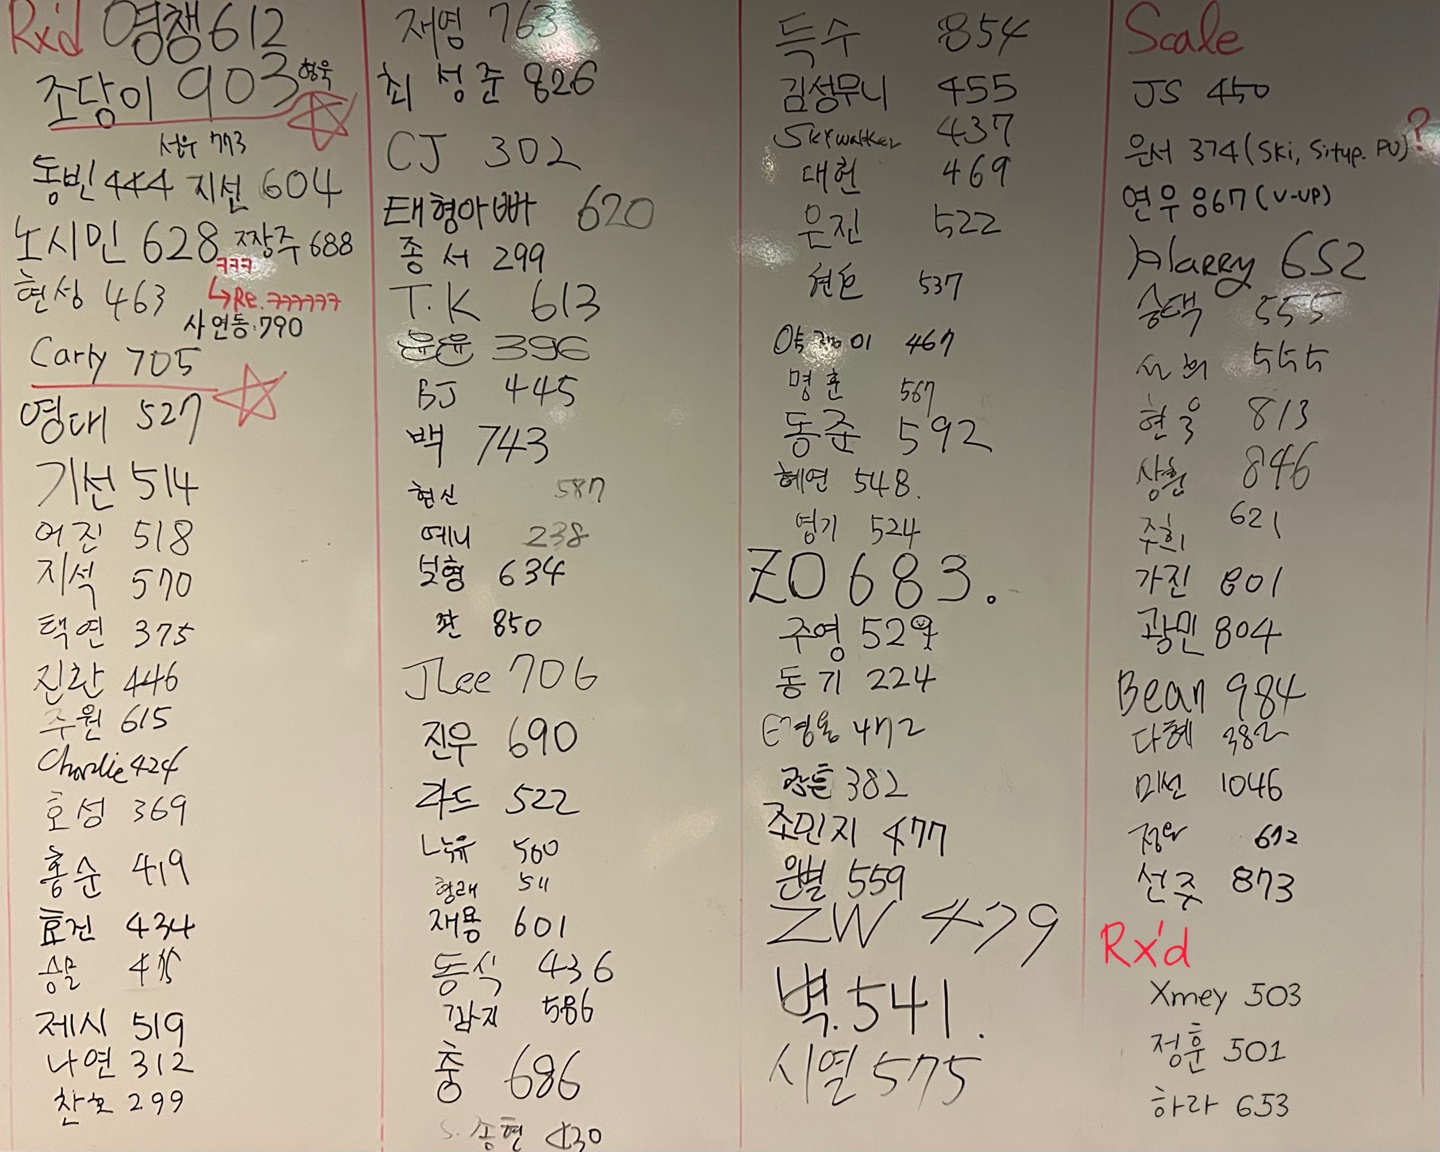 Rx'd 영챙 612
조당이 903 형욱
서유 773
동빈 444 지선 604
노시민 628 짱주 688
ㅋㅋㅋ
현성 463 ↳Re.ㅋㅋㅋㅋㅋㅋ
사연동·790
Carly 705
영대 527
기선 514
어진 518
지석 570
택연 375
진환 446
주원 615
Charlie 424
호성 369
홍순 419
효건 434
제시 519
나연 312
찬호 299
재영 763
최성준 826
CJ 302
태형아빠 620
종서 299
T.K 613
윤윤 396
BJ 445
백 743
현신 587
예니 238
보형 634
짠 850
JLee 706
진우 690
라드 522
느뉴 500
형래 511
재용 601
동식 436
깜지 586
충 686
S. 송현 430
득수 854
김성무니 455
Skywalker 437
대헌 469
은진 522
537
467
명훈 567
동준 592
혜연 548.
영기 524
ZO 683.
주영 529
동기 224
472
382
조민지 477
은별 559
ZW 479
벽.541.
시열 575
Scale
JS 450
윤서 374 (Ski, Situp. PU) ?
연우 867 (V-UP)
Harry 652
승택 555
555
현웅 813
상훈 846
주희 621
가진 801
광민 804
Bean 984
다혜 382
미선 1046
612
선주 873
Rx'd
Xmey 503
정훈 501
하라 653